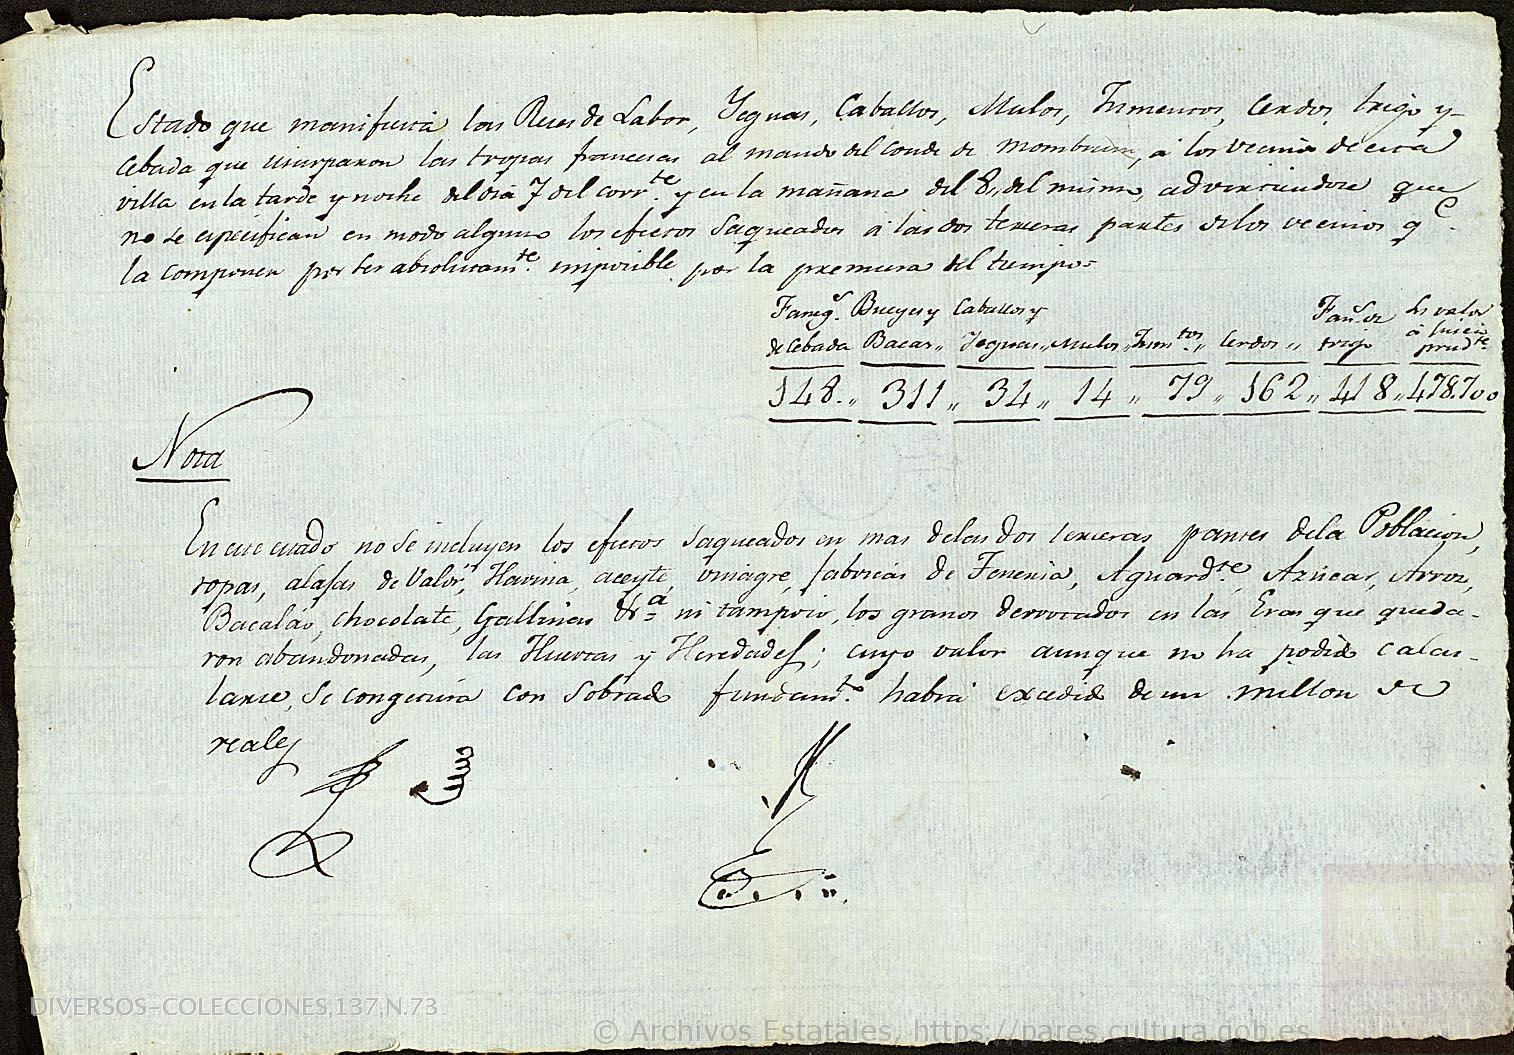 Estado que manifiesta las Reses de Labor, Yeguas, Caballos, Mulos, Jumentos, Cerdos, trigo y
cebada que usurparon las tropas francesas al mando del Conde de Mombrum, á los vecinos de esta
villa en la tarde y noche del dia 7 del corrte. y en la mañana del 8,, del mismo, advirtiendose que
no se especifican en modo alguno los efectos saqueados á las dos terceras partes de los vecinos qe.
la componen por ser absolutamte. imposible por la premura del tiempo
Faneg.s Bueyes y Caballos y Fan.s de Su valor
de Cebada Bacas,, Yeguas,, Mulos,, Jumtos.,, Cerdos,, trigo á prudte.
148.,, 311,, 34,, 14,, 79,, 162,, 418,, 478.700
Nota
En este estado no se incluyen los efectos saqueados en mas de las dos terceras partes de la Poblacion,
ropas, alajas de Valor, Harina, aceyte, vinagre, fabricas de Teneria, Aguardte. Azucar, Arroz,
Bacaláo, chocolate, Gallinas &a. ni tampoco, los granos derrotados en las Eras que queda-
ron abandonadas, las Huertas y Heredades; cuyo valor aunque no ha podido calcu-
larse, se congetura con sobrado fundamto. habrá excedido de un millon de
reales
DIVERSOS-COLECCIONES,137,N.73
© Archivos Estatales, https://pares.cultura.gob.es
A E
ARCHIVOS